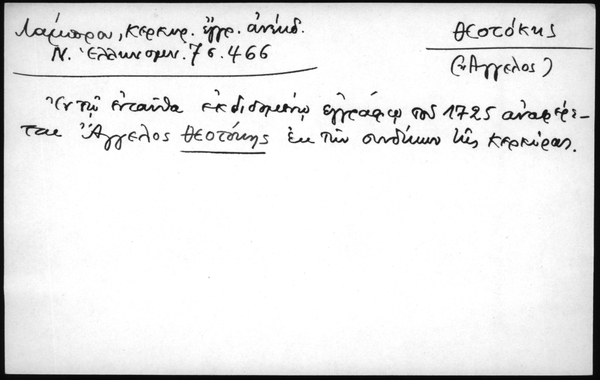 Λάμπρου, Κερκυρ. ἔγγρ. ἀνέκδ.
Ν. Ἑλληνομν. 7 σ. 466
Θεοτόκης
(Ἄγγελος)
Ἐν τῷ ἐνταῦθα ἐκδιδομένῳ ἐγγράφῳ τοῦ 1725 ἀναφέρε-
ται Ἄγγελος Θεοτόκης ἐκ τῶν συνδίκων τῆς Κερκύρας.